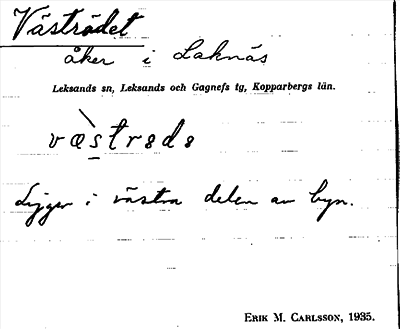 Väströdet
åker i Laknäs
Leksands sn, Leksands och Gagnefs tg, Kopparbergs län.
Ligger i västra delen av byn.
ERIK M. CARLSSON, 1935.